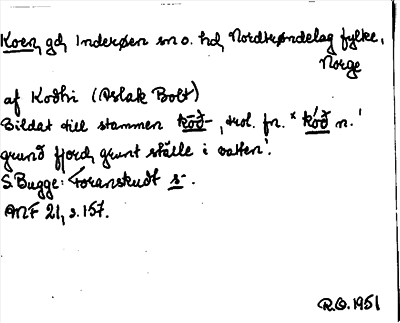 Koen, gd, Inderøen sn o. hd, Nordtrøndelag fylke,
Norge
af Kodhi (Aslak Bolt)
Bildat till stammen kōð-, trol. fr. *kóð n. '
grund fjord, grunt ställe i vatten'.
S. Bugge: Foranskudt s-.
ANF 21, s. 157.
R.O. 1951